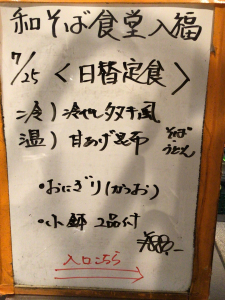 和そば食堂 入福
7/25 <日替定食>
冷) 冷やしタヌキ風
温) 甘あげ昆布 そば・うどん
・おにぎり(かつお)
・小鉢 2品付
入口こちら